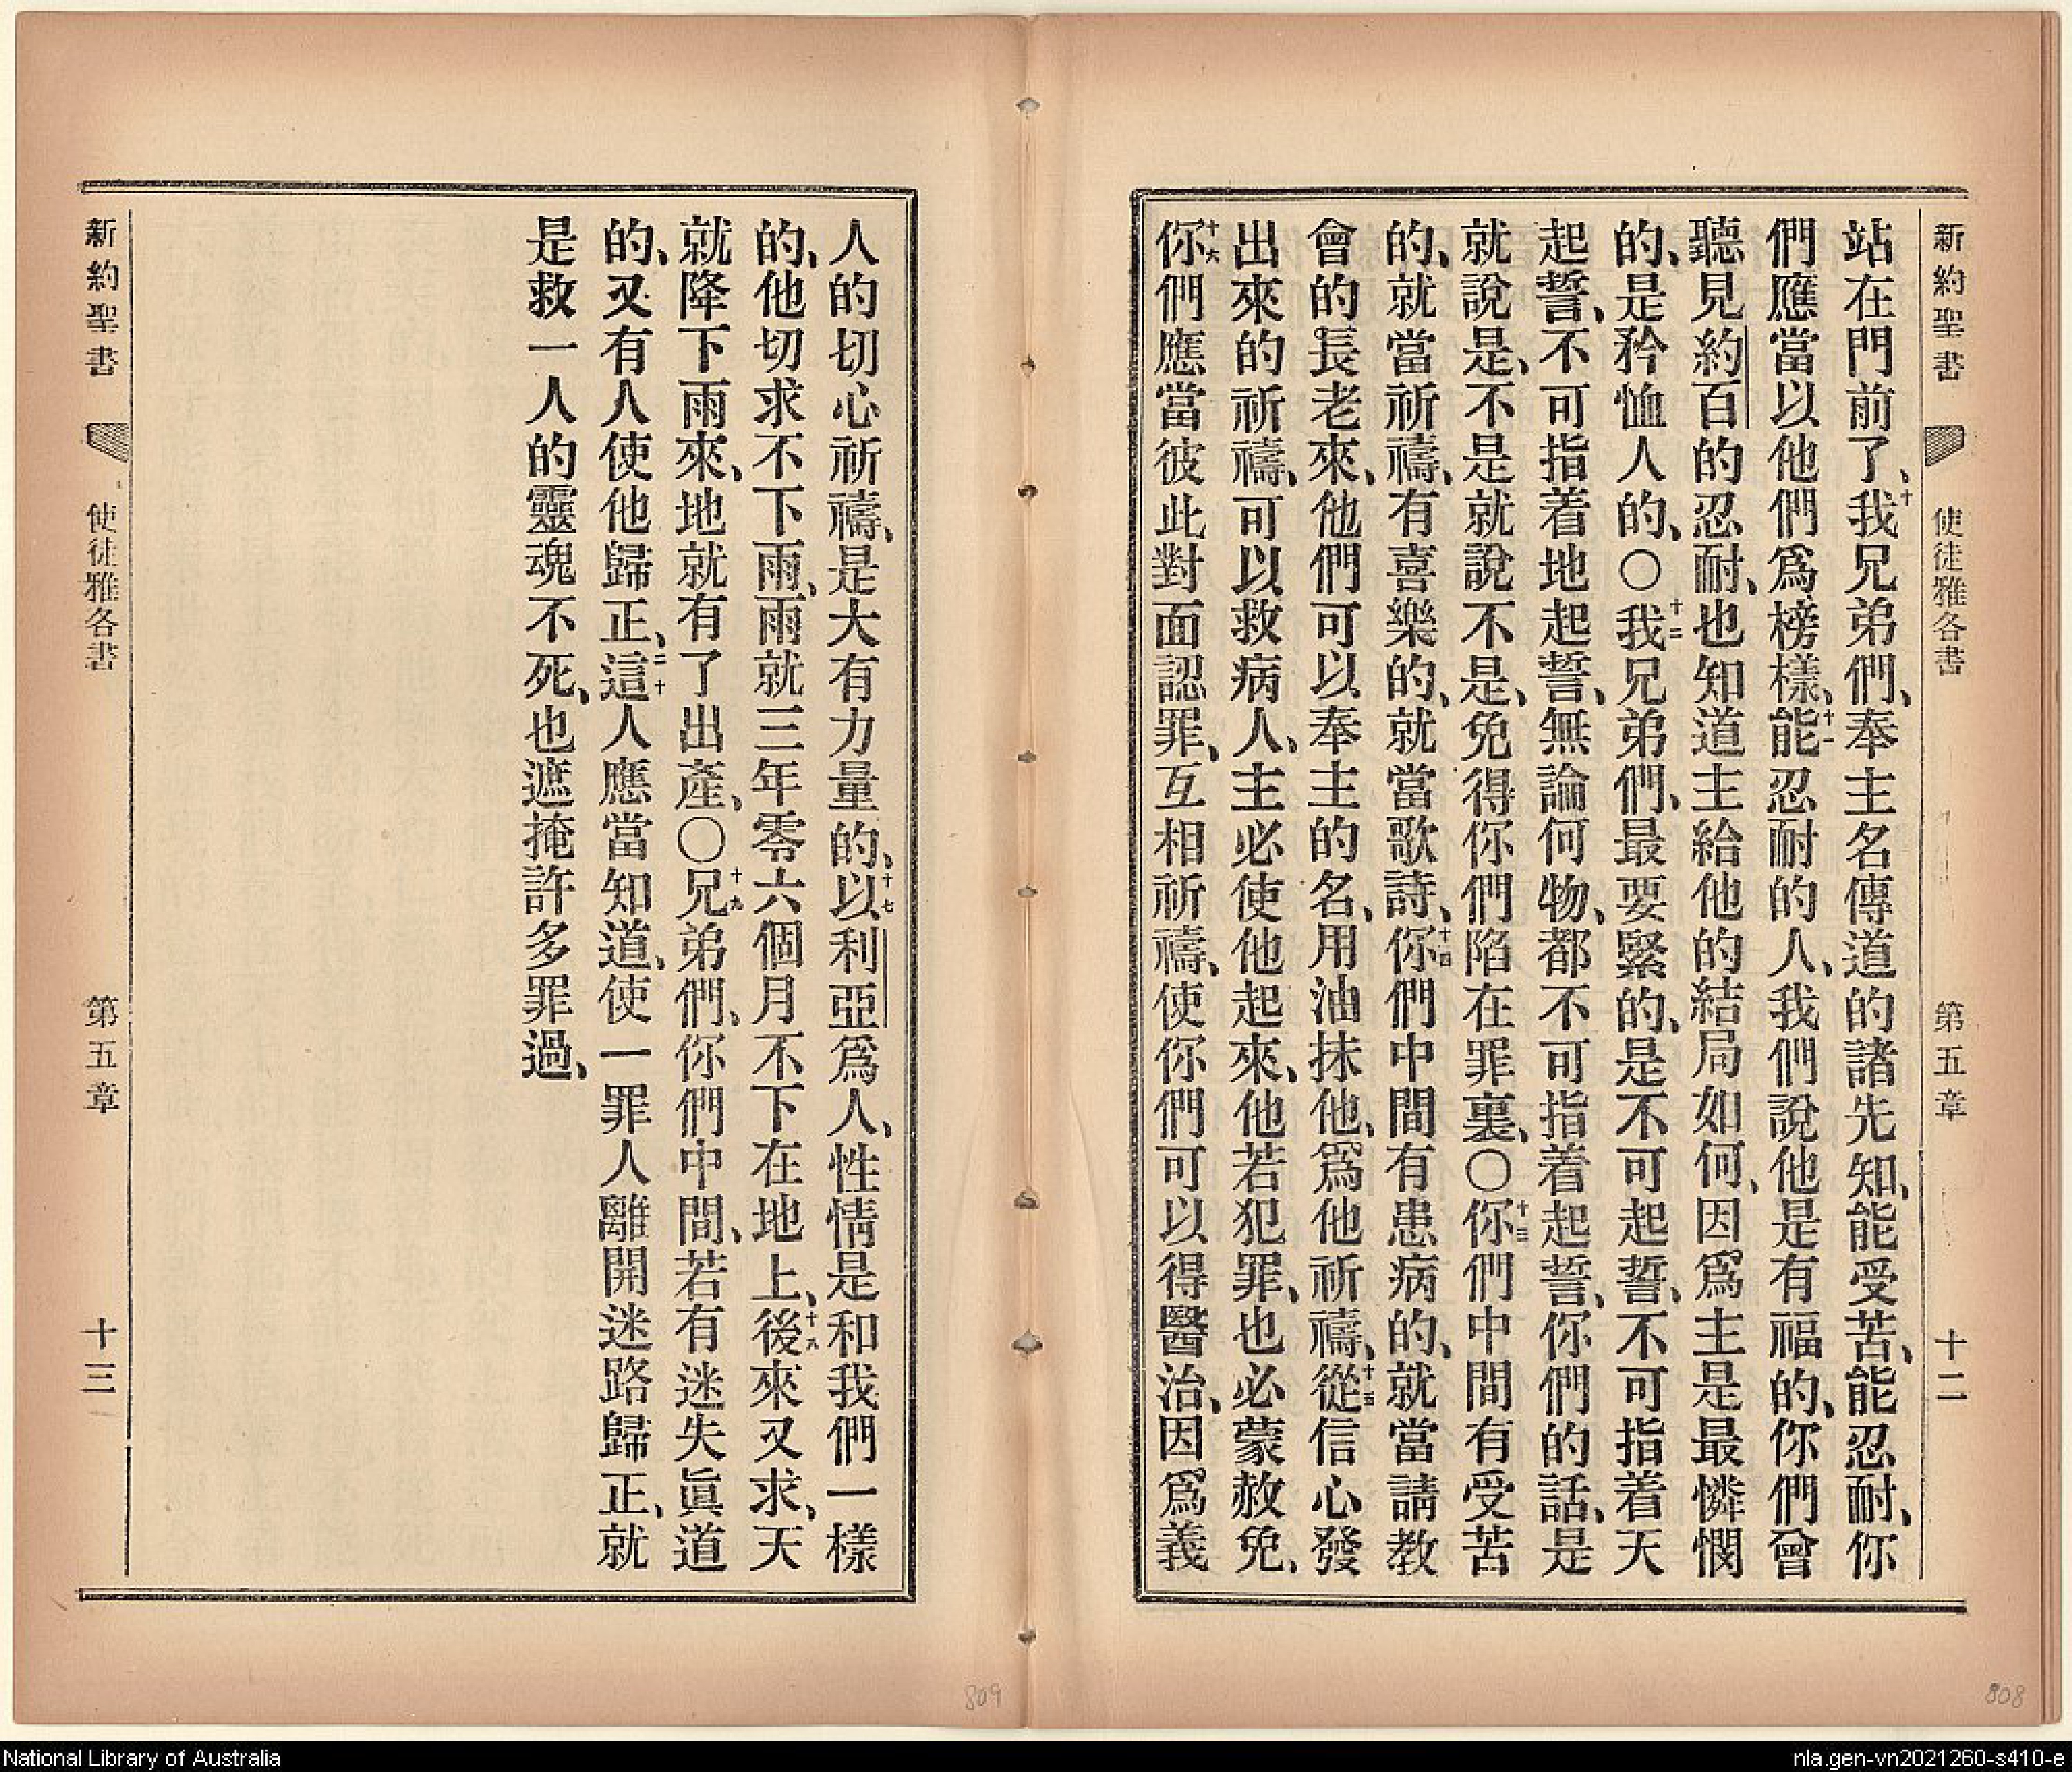 新約聖書 使徒雅各書 第五章 十二
站在門前了、十我兄弟們、奉主名傳道的諸先知、能受苦、能忍耐、你
們應當以他們爲榜樣、十一能忍耐的人、我們說他是有福的、你們曾
聽見約百的忍耐、也知道主給他的結局如何、因爲主是最憐憫
的、是矜恤人的、○十二我兄弟們、最要緊的、是不可起誓、不可指着天
起誓、不可指着地起誓、無論何物、都不可指着起誓、你們的話、是
就說是、不是就說不是、免得你們陷在罪裏、○十三你們中間有受苦
的、就當祈禱、有喜樂的、就當歌詩、十四你們中間有患病的、就當請教
會的長老來、他們可以奉主的名、用油抹他、爲他祈禱、十五從信心發
出來的祈禱、可以救病人、主必使他起來、他若犯罪、也必蒙赦免、
十六你們應當彼此對面認罪、互相祈禱、使你們可以得醫治、因爲義
人的切心祈禱、是大有力量的、十七以利亞爲人、性情是和我們一樣
的、他切求不下雨、雨就三年零六個月不下在地上、十八後來又求、天
就降下雨來、地就有了出產、○十九兄弟們、你們中間、若有迷失眞道
的、又有人使他歸正、二十這人應當知道、使一罪人離開迷路歸正、就
是救一人的靈魂不死、也遮掩許多罪過、
新約聖書 使徒雅各書 第五章 十三
809
808
National Library of Australia
nla.gen-vn2021260-s410-e